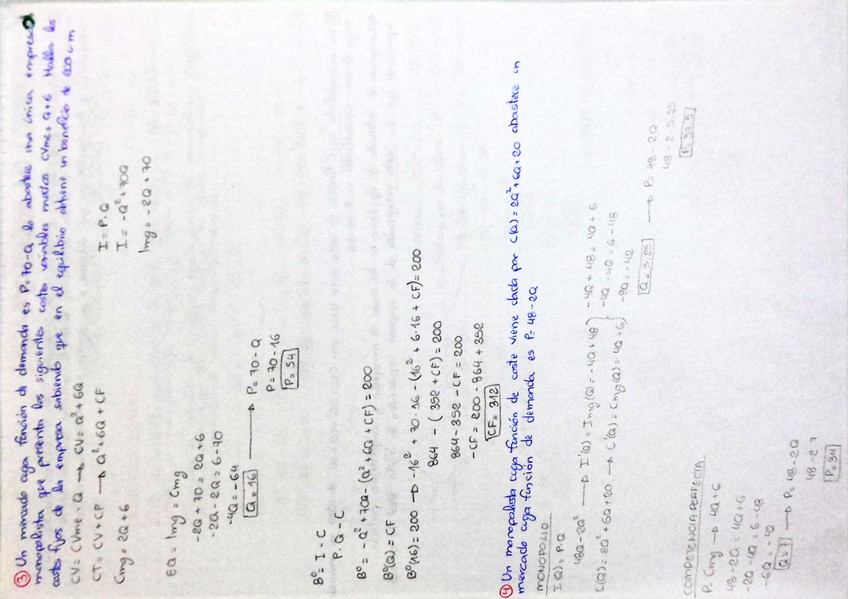 ③ Un mercado cuya función de demanda es P=70-Q lo abastece una única empresa
monopolista que presenta los siguientes costes variables medios CVme=Q+6 Halla los
costes fijos de la empresa sabiendo que en el equilibrio obtiene un beneficio de 200 u.m
CV = CVme · Q → CV = Q²+6Q
CT = CV + CF → Q²+6Q + CF
Cmg = 2Q+6
I = P·Q
I = -Q²+70Q
Img = -2Q+70
EQ = Img = Cmg
-2Q + 70 = 2Q+6
-2Q - 2Q = 6-70
-4Q = -64
Q = 16 → P = 70-Q
P = 70-16
P = 54
Bº = I - C
P·Q - C
Bº = -Q² + 70Q - (Q²+6Q+CF) = 200
Bº(Q) = CF
Bº(16) = 200 → -16² + 70·16 - (16² + 6·16 + CF) = 200
864 - (352 + CF) = 200
864 - 352 - CF = 200
-CF = 200 - 864 + 352
CF = 312
④ Un monopolista cuya función de coste viene dada por C(Q) = 2Q²+6Q+20 abastece un
mercado cuya función de demanda es P = 48-2Q
MONOPOLIO
I(Q) = P·Q
48Q - 2Q² → I'(Q) = Img(Q) = -4Q+48
C(Q) = 2Q²+6Q+20 → C'(Q) = Cmg(Q) = 4Q+6
-4Q + 48 = 4Q + 6
-4Q - 4Q = 6 - 48
-8Q = -42
Q = 5.25 → P = 48-2Q
48 - 2·5.25
P = 37.5
COMPETENCIA PERFECTA
P = Cmg → 4Q+6
48 - 2Q = 4Q+6
-2Q - 4Q = 6-48
-6Q = -42
Q = 7 → P = 48-2Q
48 - 2·7
P = 34